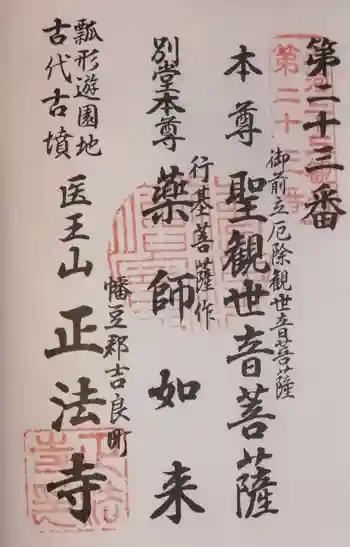 第二十三番
御前立厄除観世音菩薩
本尊 聖観世音菩薩
行基菩薩作
別堂本尊 薬師如来
幡豆郡吉良町
医王山 正法寺
瓢形遊園地
古代古墳
第二十三番